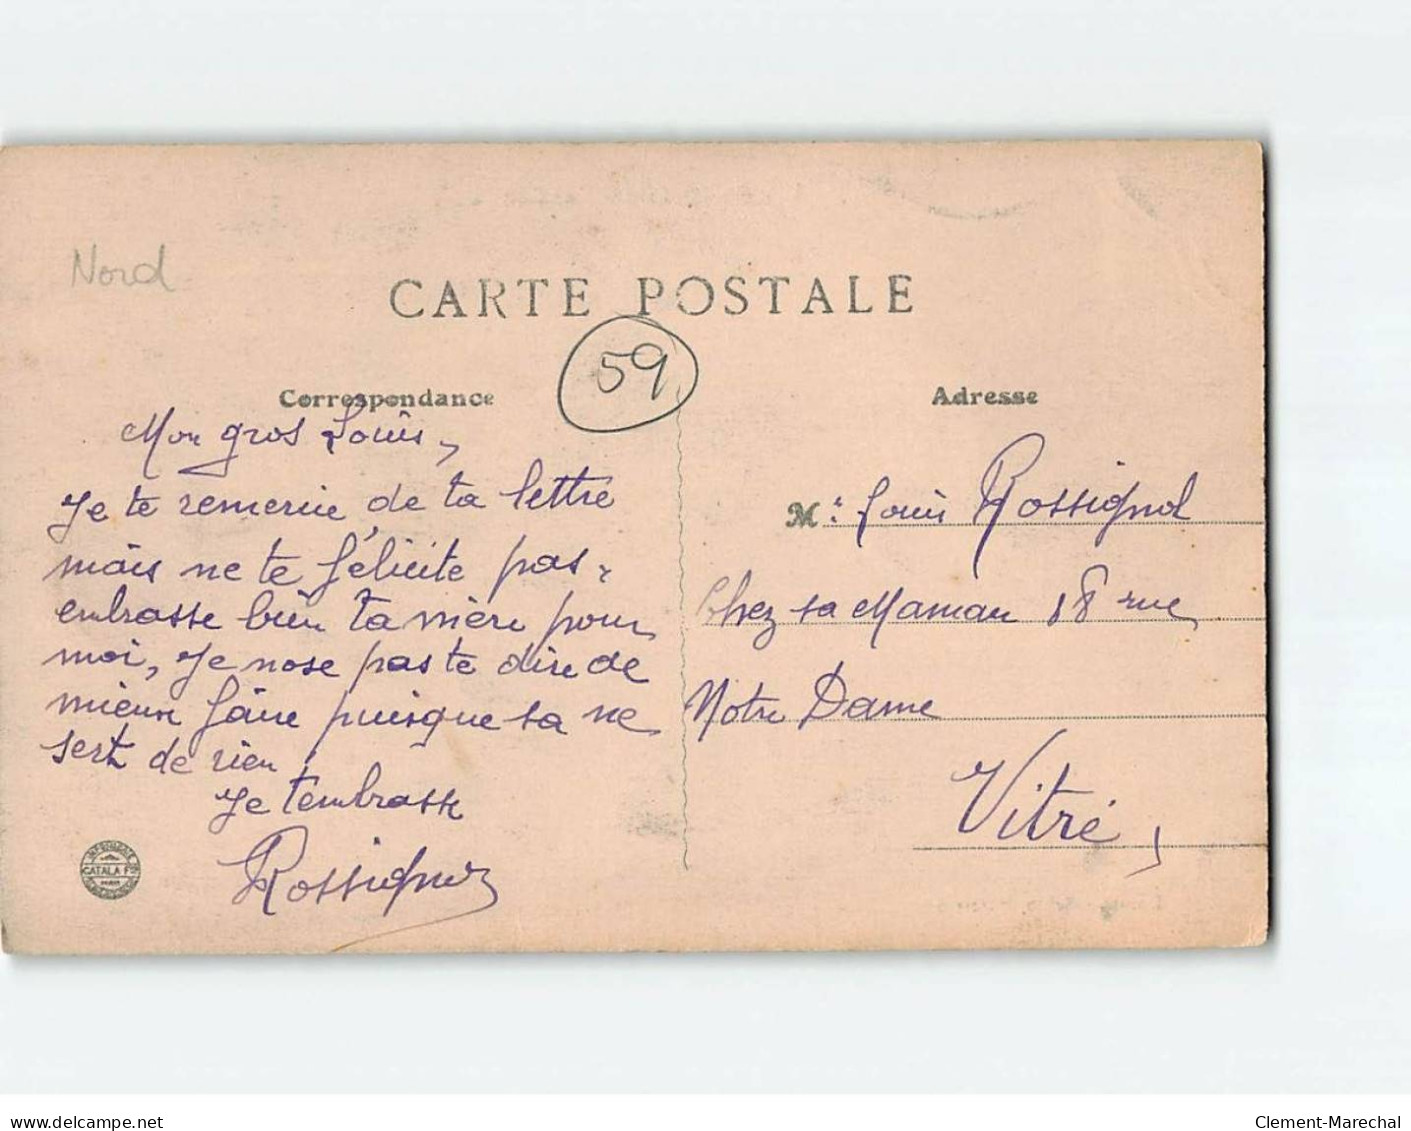 Nord
CARTE POSTALE
59
Correspondance
Mon gros Louis,
Je te remercie de ta lettre
mais ne te félicite pas,
embrasse bien ta mère pour
moi, Je nose pas te dire de
mieux faire puisque sa ne
sert de rien
Je t'embrasse
Rossignol
CATALA Fres
Adresse
Mr Louis Rossignol
Chez sa Maman 18 rue
Notre Dame
Vitré,
delcampe.net
Clement-Marechal